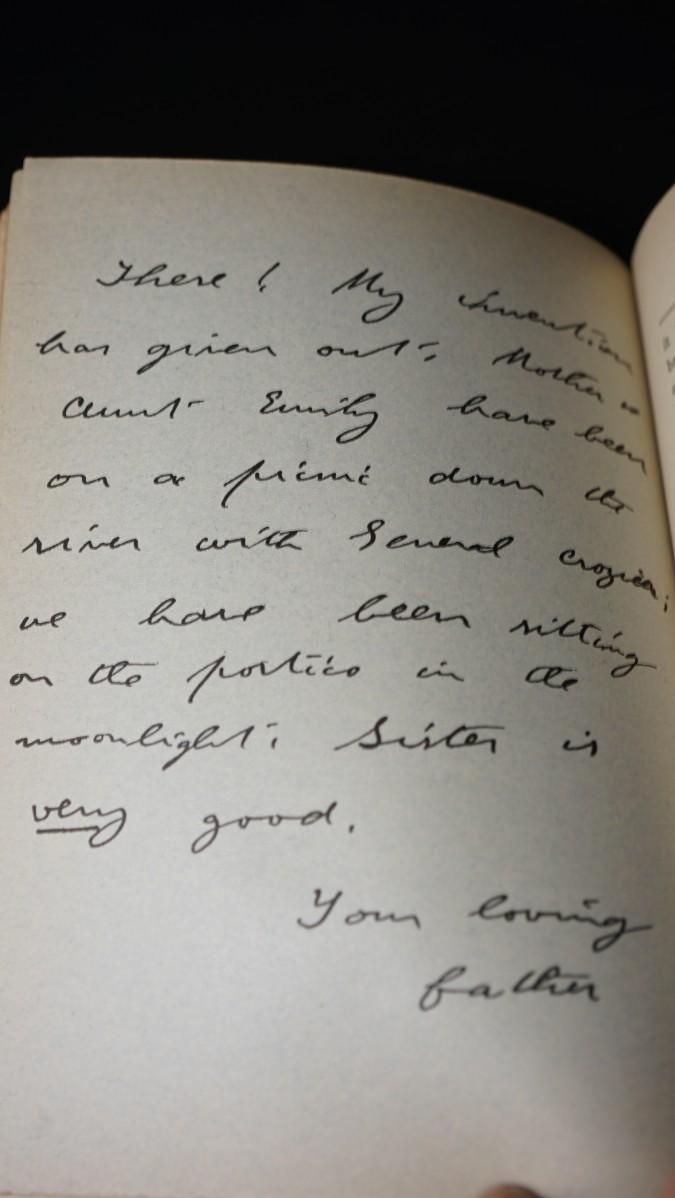 There! My invention
has given out. Mother &
Aunt Emily have been
on a picnic down the
river with General Crozier;
we have been sitting
on the portico in the
moonlight; Sister is
very good.
Your loving
father